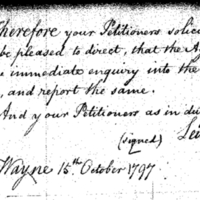 Therefore your Petitioners solic
be pleased to direct, that the A
immediate enquiry into the
, and report the same.
And your Petitioners as in du
(signed) Lei
Wayne 15th October 1797.